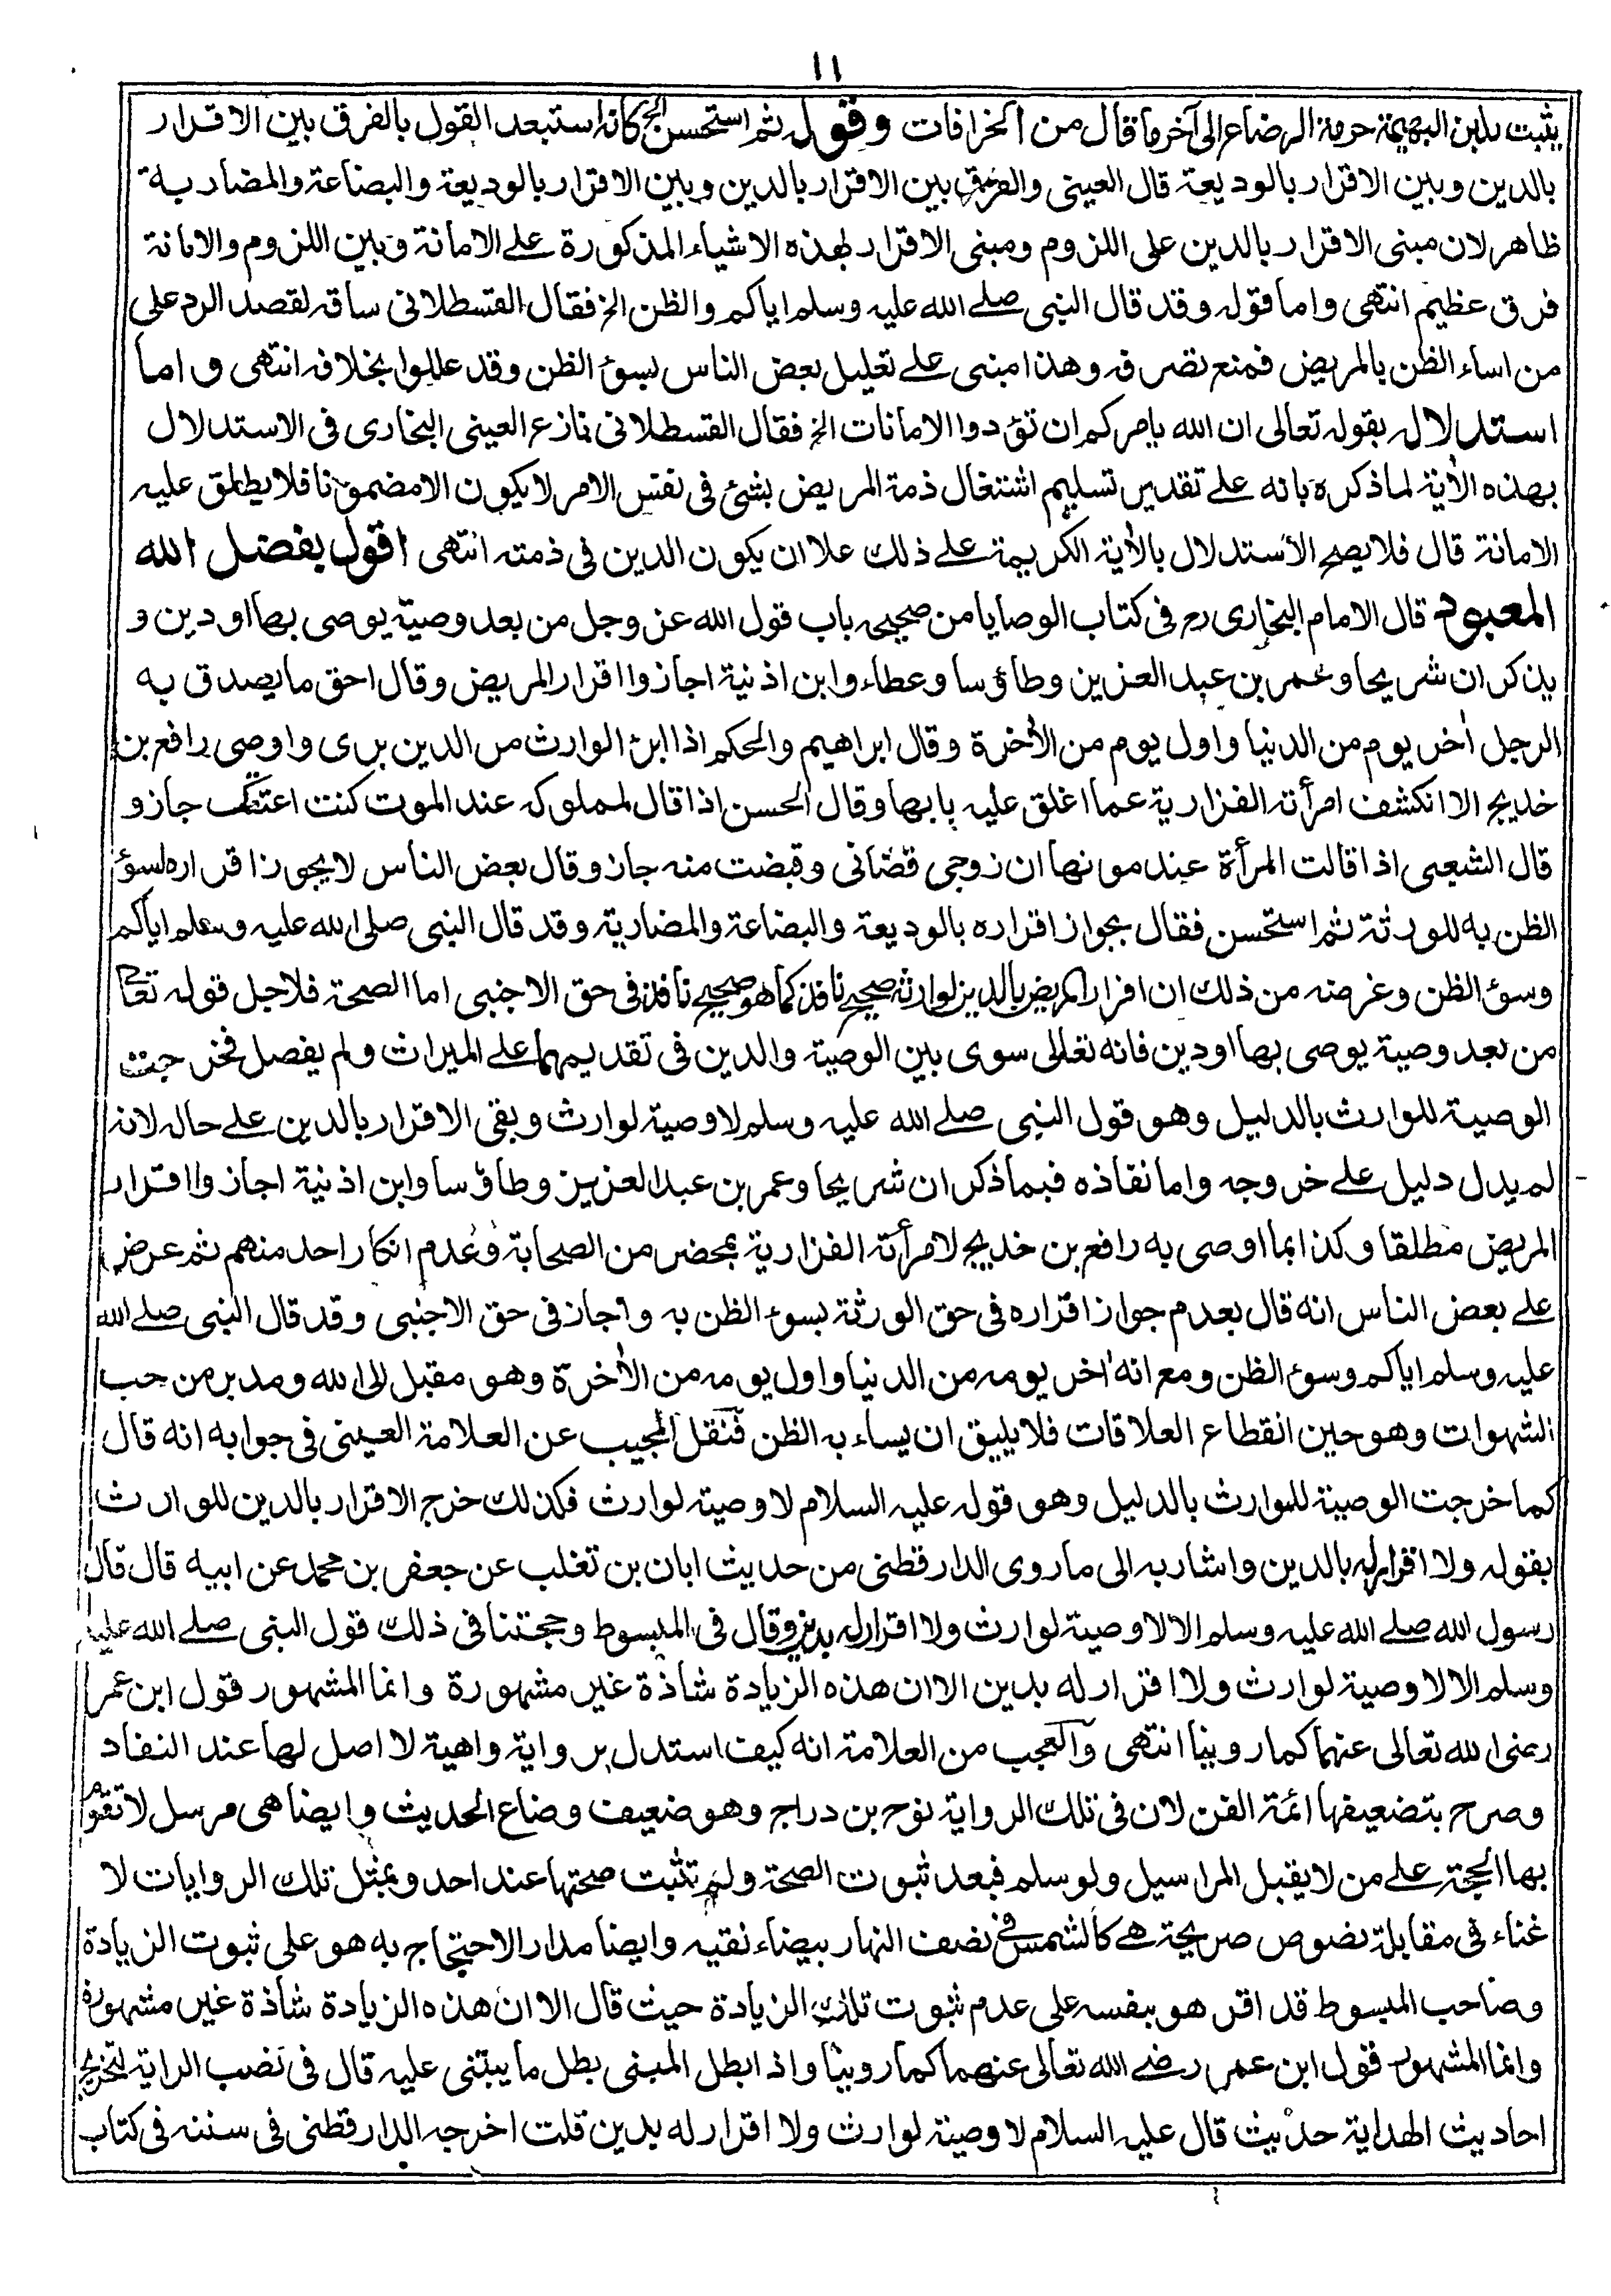 ١١
يثبت بلبن البهيمة حرمة الرضاع الى آخر ما قال من الخرافات وقوله ثم استحسن الخ كانه استبعد القول بالفرق بين الاقرار
بالدين وبين الاقرار بالوديعة قال العينى والفرق بين الاقرار بالدين وبين الاقرار بالوديعة والبضاعة والمضاربة
ظاهر لان مبنى الاقرار بالدين على اللزوم ومبنى الاقرار بهذه الاشياء المذكورة على الامانة وبين اللزوم والامانة
فرق عظيم انتهى واما قوله وقد قال النبى صلى الله عليه وسلم اياكم والظن الخ فقال القسطلانى ساقه لقصد الرد على
من اساء الظن بالمريض فمنع تصرفه وهذا مبنى على تعليل بعض الناس بسوء الظن وقد عللوا بخلافه انتهى واما
استدلاله بقوله تعالى ان الله يامركم ان تؤدوا الامانات الخ فقال القسطلانى نازع العينى البخارى فى الاستدلال
بهذه الأية لما ذكره بانه على تقدير تسليم اشتغال ذمة المريض بشئ فى نفس الامر لا يكون الا مضمونا فلا يطلق عليه
الامانة قال فلا يصح الاستدلال بالأية الكريمة على ذلك علا ان يكون الدين فى ذمته انتهى اقول بفضل الله
المعبود قال الامام البخارى رح فى كتاب الوصايا من صحيحه باب قول الله عز وجل من بعد وصية يوصى بها او دين و
يذكر ان شريحا وعمر بن عبد العزيز وطاؤسا وعطاء وابن اذنية اجازوا اقرار المريض وقال احق ما يصدق به
الرجل أخر يوم من الدنيا واول يوم من الأخرة وقال ابراهيم والحكم اذا ابرء الوارث من الدين برى واوصى رافع بن
خديج الا انكشف امرأته الفزارية عما اغلق عليه بابها وقال الحسن اذا قال لمملوكه عند الموت كنت اعتقتك جاز و
قال الشعبى اذا قالت المرأة عند موتها ان زوجى قضانى وقبضت منه جاز وقال بعض الناس لا يجوز اقراره لسوء
الظن به للورثة ثم استحسن فقال يجواز اقراره بالوديعة والبضاعة والمضاربة وقد قال النبى صلى الله عليه وسلم اياكم
وسوء الظن وغرضه من ذلك ان اقرار المريض بالدين لوارثه صحيح نافذ كما هو صحيح نافذ فى حق الاجنبى اما الصحة فلاجل قوله تعالى
من بعد وصية يوصى بها او دين فانه تعالى سوى بين الوصية والدين فى تقديمهما على الميراث ولم يفصل فخرجت
الوصية للوارث بالدليل وهو قول النبى صلى الله عليه وسلم لا وصية لوارث وبقى الاقرار بالدين على حاله لانه
لم يدل دليل على خروجه واما نفاذه فبما ذكر ان شريحا وعمر بن عبد العزيز وطاؤسا وابن اذنية اجازوا اقرار
المريض مطلقا وكذا بما اوصى به رافع بن خديج لامرأته الفزارية بمحضر من الصحابة وعدم انكار احد منهم ثم عرض
على بعض الناس انه قال بعدم جواز اقراره فى حق الورثة بسوء الظن به واجاز فى حق الاجنبى وقد قال النبى صلى الله
عليه وسلم اياكم وسوء الظن ومع انه أخر يومه من الدنيا واول يومه من الأخرة وهو مقبل الى الله ومدبر من حب
الشهوات وهو حين انقطاع العلاقات فلا يليق ان يساء به الظن فنقل المجيب عن العلامة العينى فى جوابه انه قال
كما خرجت الوصية للوارث بالدليل وهو قوله عليه السلام لا وصية لوارث فكذلك خرج الاقرار بالدين للوارث
بقوله ولا اقرار له بالدين واشار به الى ما روى الدارقطنى من حديث ابان بن تغلب عن جعفر بن محمد عن ابيه قال قال
رسول الله صلى الله عليه وسلم الا لا وصية لوارث ولا اقرار له بدين وقال فى المبسوط وحجتنا فى ذلك قول النبى صلى الله عليه
وسلم الا لا وصية لوارث ولا اقرار له بدين الا ان هذه الزيادة شاذة غير مشهورة وانما المشهور قول ابن عمر
رضى الله تعالى عنهما كما روينا انتهى والعجب من العلامة انه كيف استدل بر واية واهية لا اصل لها عند النفاد
وصرح بتضعيفها ائمة الفن لان فى تلك الرواية نوح بن دراج وهو ضعيف وضاع الحديث وايضا هى مرسل لا تقوم
بها الحجة على من لا يقبل المراسيل ولو سلم فبعد ثبوت الصحة ولم تثبت صحتها عند احد وبمثل تلك الروايات لا
غناء فى مقابلة نصوص صريحة هى كالشمس فى نصف النهار بيضاء نقيه وايضا مدار الاحتجاج به هو على ثبوت الزيادة
وصاحب المبسوط قد اقر هو بنفسه على عدم ثبوت تلك الزيادة حيث قال الا ان هذه الزيادة شاذة غير مشهورة
وانما المشهور قول ابن عمر رضى الله تعالى عنهما كما روينا واذا بطل المبنى بطل ما يبتنى عليه قال فى نصب الراية لتخريج
احاديث الهداية حديث قال عليه السلام لا وصية لوارث ولا اقرار له بدين قلت اخرجه الدارقطنى فى سننه فى كتاب